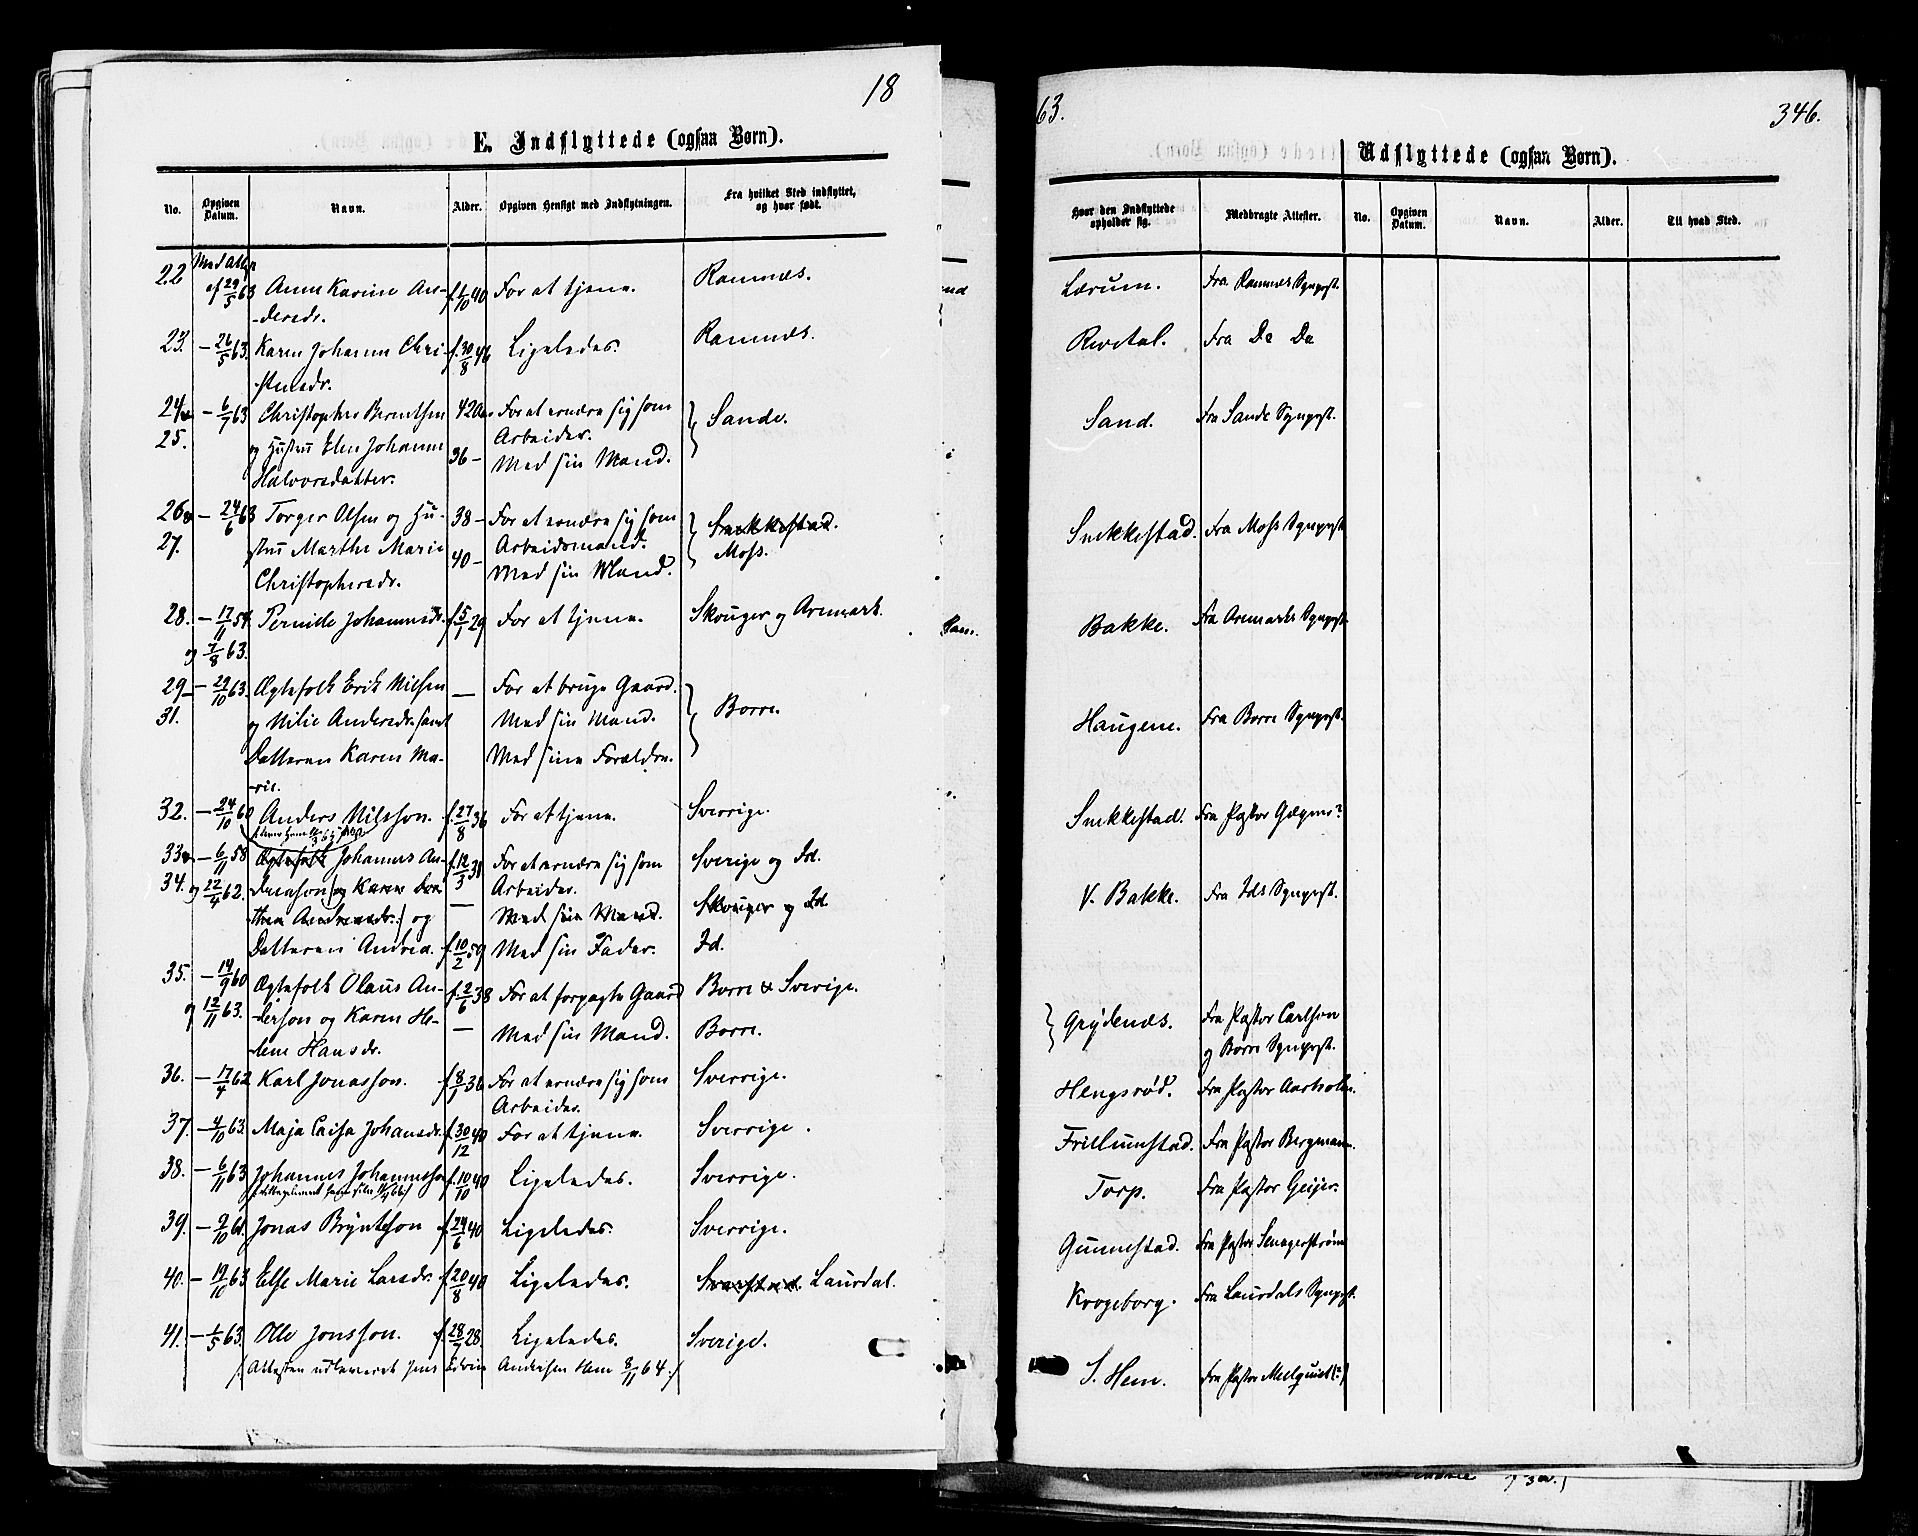 18
E. Indflyttede (ogsaa Børn).
No. Opgiven Datum. Navn. Alder. Opgiven Hensigt med Indflytningen. Fra hvilket Sted indflyttet, og hvor født.
22 Med Att. af 29/5 63 Anne Karine An- f. 1/10 40 For at tjene. Ramnæs.
-dersdr.
23. – 26/5 63. Karen Johanne Chri- f. 30/8 46 Ligeledes. Ramnæs.
-stensdr.
24 – 6/7 63 Christopher Berntsen 42 Aar For at ernære sig som Sande.
25. og Hustru Elen Johanne Arbeider.
Halvorsdatter. 36 – Med sin Mand.
26 – 24/6 63 Torger Olsen og Hu- 38 – For at ernære sig som Snekkestad.
27. stru Marthe Marie 40 – Arbeidsmand. Moss.
Christophersdr. Med sin Mand.
28. – 17/11 54. Pernille Johannesdr. f. 5/1 29 For at tjene. Skouger og Aremark.
og 7/8 63.
29 – 29/10 63. Ægtefolk Erik Nilsen — For at bruge Gaard. Borre.
31. og Nilie Andersdr. samt Med sin Mand.
Datteren Karen Ma- Med sine Forældre.
-rie.
32. – 24/10 60 Anders Nilsson. f. 27/8 36 For at tjene. Sverrige.
33 – 6/11 58 Ægtefolk Johannes An- f. 12/3 31 For at ernære sig som Sverige og Id.
34. og 22/4 62. dreasson (og Karen Doro- Arbeider.
thea Andreasdr.) og — Med sin Mand. Skouger og Id
Datteren Andrea. f. 10/2 59 Med sin Fader. Id.
35. – 14/9 60 Ægtefolk Olaus An- f. 2/6 38 For at forpagte Gaard Borre & Sverige.
og 12/11 63. -derson og Karen He- — Med sin Mand. Borre.
-lene Hansdr.
36. – 17/4 62 Karl Jonasson. f. 8/1 36 For at ernære sig som Sverrige.
Arbeider.
37. – 4/10 63. Maja Caisa Johansdr. f. 30/12 40 For at tjene. Sverrige.
38. – 6/11 63 Johannes Johannesson f. 10/10 40 Ligeledes. Sverrige.
39. – 9/10 61. Jonas Brynteson f. 24/6 40 Ligeledes. Sverrige.
40. – 19/10 63 Else Marie Larsdr. f. 20/8 40 Ligeledes. Svarstad. Laurdal.
41. – 1/5 63. Olle Jonsson. f. 28/7 28. Ligeledes. Sverige.
(: Attesten udleveret Jens Edvin Andersen Hem 8/11 64 :)
63.
346.
Udflyttede (ogsaa Børn).
Hvor den Indflyttede opholder sig. Medbragte Attester. No. Opgiven Datum. Navn. Alder. Til hvad Sted.
Lærum. Fra Ramnæs Sgnpræst.
Revetal. Fra Do Do
Sand. Fra Sande Sgnpræst.
Snekkestad. Fra Moss Sgnpræst
Bakke. Fra Aremarks Sgnpræst.
Haugene. Fra Borre Sgnpræst.
Snekkestad. Fra Pastor Gægner?
V. Bakke. Fra Ids Sgnpræst.
Grydenæs. Fra Pastor Carlson
og Borre Sgnpræst.
Hengsrød. Fra Pastor Aarholm.
Frellumstad. Fra Pastor Bergmann.
Torp. Fra Pastor Geijer.
Gunnestad. Fra Pastor
Krogeborg. Fra Laurdals Sgnpræst.
S. Hem. Fra Pastor Mellquist(?)